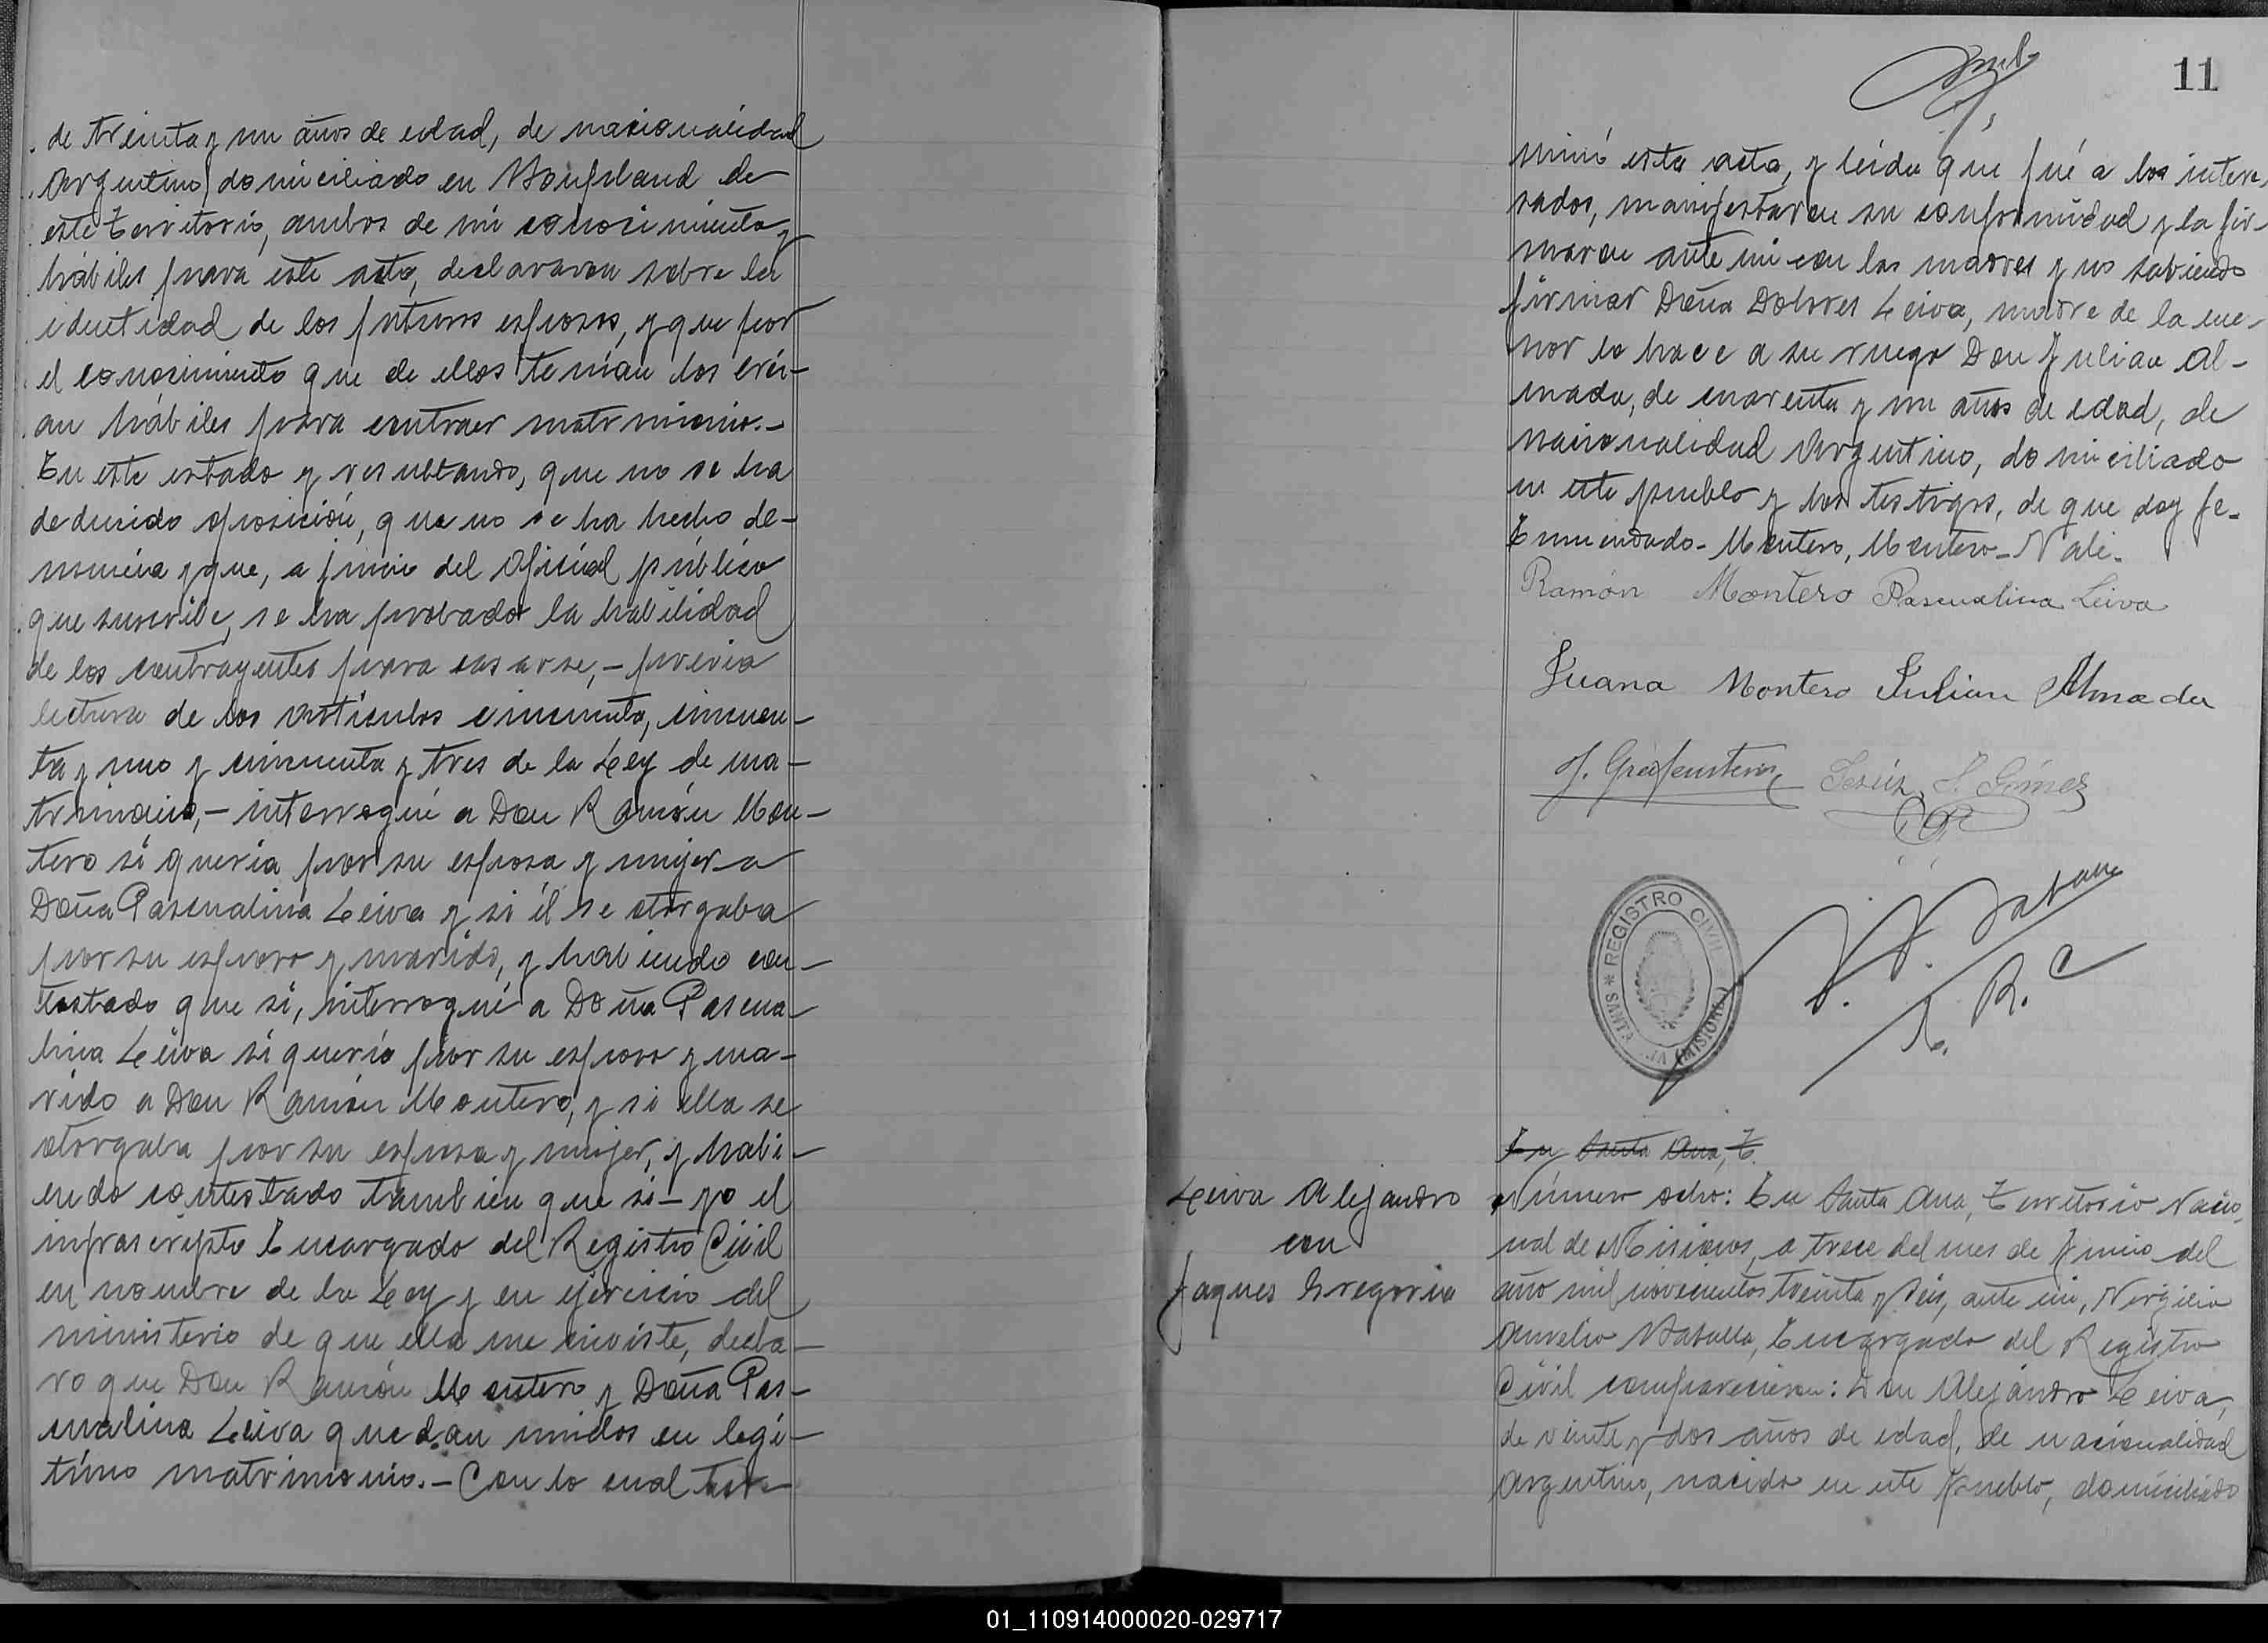 de treinta y un años de edad, de nacionalidad
Argentino, domiciliado en Bonpland de
este Territorio, ambos de mi conocimiento y
hábiles para este acto, declararon sobre la
identidad de los futuros esposos, y que por
el conocimiento que de ellos tenían los creí-
an hábiles para contraer matrimonio.-
En este estado y resultando, que no se ha
deducido oposición, que no se ha hecho de-
nuncia y que, a juicio del Oficial público
que suscribe, se ha probado la habilidad
de los contrayentes para casarse,- previa
lectura de los artículos cincuenta, cincuen-
ta y uno y cincuenta y tres de la Ley de ma-
trimonio,- interrogué a Don Ramón Mon-
tero si quería por su esposa y mujer a
Doña Pascualina Leiva y si él se otorgaba
por su esposo y marido, y habiendo con-
testado que si, interrogué a Doña Pascua-
lina Leiva si quería por su esposo y ma-
rido a Don Ramón Montero, y si ella se
otorgaba por su esposa y mujer, y habi-
endo contestado tambien que si- yo el
infrascripto Encargado del Registro Civil
en nombre de la Ley y en ejercicio del
ministerio de que ella me inviste, decla-
ro que Don Ramón Montero y Doña Pas-
cualina Leiva quedan unidos en legí-
timo matrimonio.- Con lo cual ter-
11
minó esta acta, y leída que fué a los intere-
sados, manifestaron su conformidad y la fir-
maron ante mi con las madres y no sabiendo
firmar Doña Dolores Leiva, madre de la me-
nor lo hace a su ruego Don Julian Al-
mada, de cuarenta y un años de edad, de
nacionalidad Argentino, domiciliado
en este pueblo y los testigos, de que doy fe.
Enmendado- Montero, Montero- Vale.
Ramón Montero Pascualina Leiva
Juana Montero Julian Almada
J. Gräfenstein Jesús J. Gómez
REGISTRO CIVIL
SANTA ANA (MISIONES)
E. R. C
En Santa Ana, T.
Leiva Alejandro
con
Jaques Gregoria
Número ocho: En Santa Ana, Territorio Nacio-
nal de Misiones, a trece del mes de Junio del
año mil novecientos treinta y seis, ante mi, Virgilio
Aurelio Batalla, Encargado del Registro
Civil comparecieron: Don Alejandro Leiva,
de veinte y dos años de edad, de nacionalidad
Argentino, nacido en este Pueblo, domiciliado
01_110914000020-029717